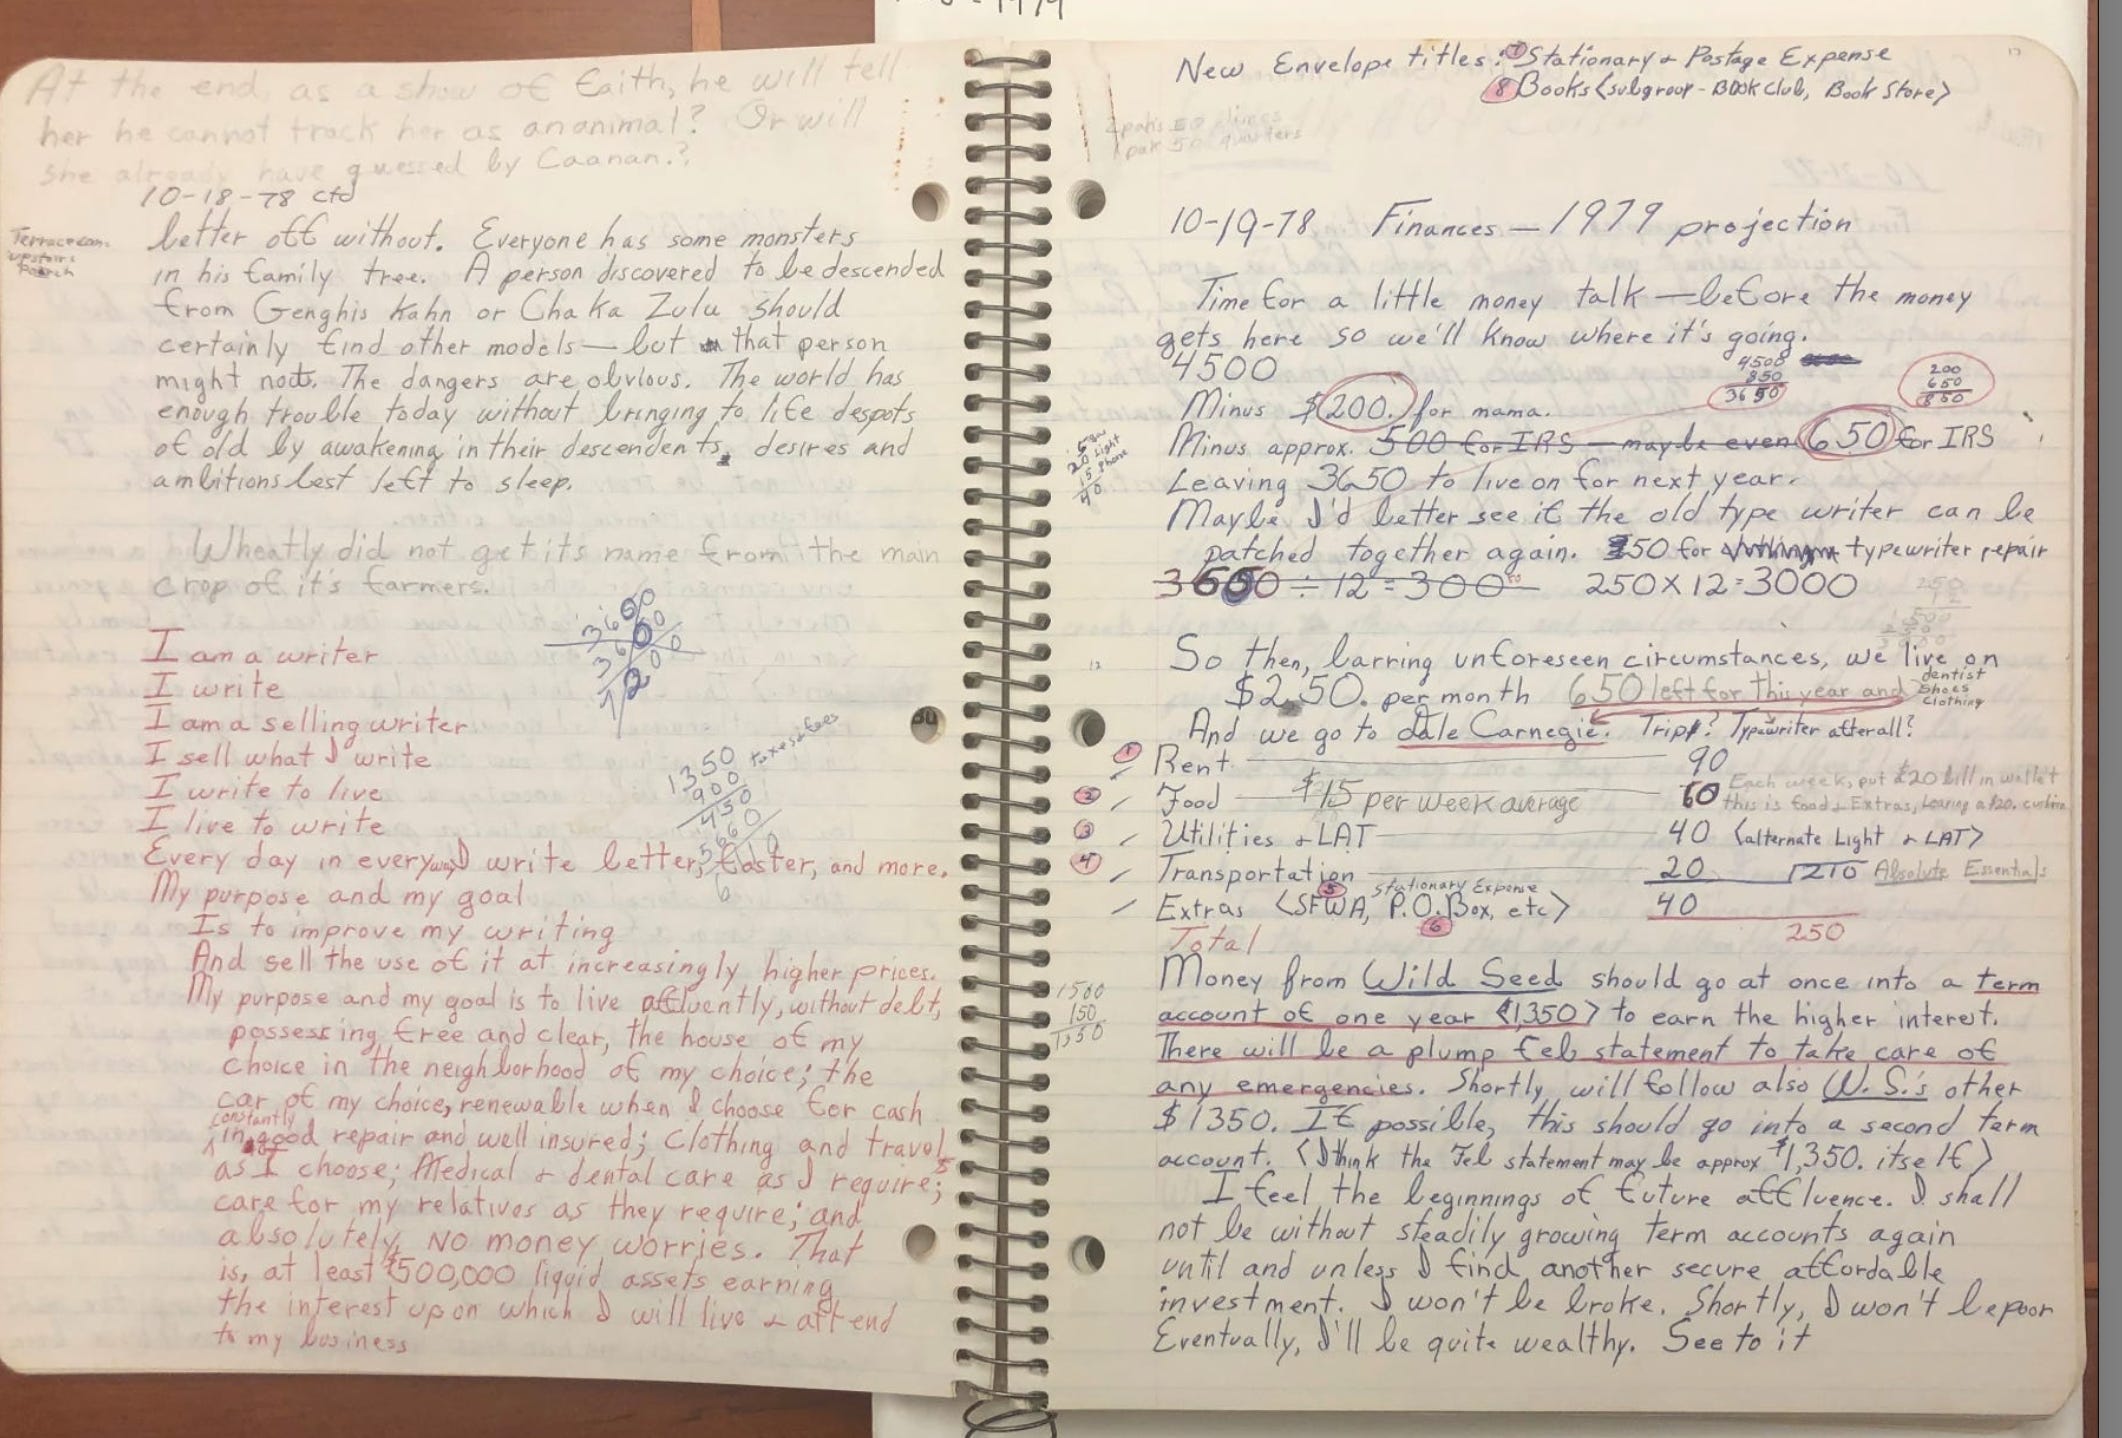 At the end, as a show of faith, he will tell
her he cannot track her as an animal? Or will
she already have guessed by Caanan.?
10-18-78 ctd
Terrace con.
upstairs
porch
better off without. Everyone has some monsters
in his family tree. A person discovered to be descended
from Genghis Kahn or Chaka Zulu should
certainly find other models — but that person
might not. The dangers are obvious. The world has
enough trouble today without bringing to life despots
of old by awakening in their descendents, desires and
ambitions best left to sleep.
Wheatly did not get its name from the main
crop of it's farmers.
3600
3600
7200
I am a writer
I write
I am a selling writer
I sell what I write
I write to live
I live to write
1350 taxes & fees
900
450
Every day in every way I write better, faster, and more.
My purpose and my goal
Is to improve my writing
And sell the use of it at increasingly higher prices.
My purpose and my goal is to live affluently, without debt,
possessing free and clear, the house of my
choice in the neighborhood of my choice; the
car of my choice, renewable when I choose for cash
constantly
in good repair and well insured; clothing and travel
as I choose; Medical & dental care as I require;
care for my relatives as they require; and
absolutely, NO money worries. That
is, at least $500,000 liquid assets earning
the interest upon which I will live & attend
to my business
New Envelope titles: 7 Stationary & Postage Expense
8 Books <subgroup - Book club, Book Store>
50 dimes
50 quarters
10-19-78 Finances — 1979 projection
Time for a little money talk — before the money
gets here so we'll know where it's going.
4500
4500
850
3650
200
650
850
Minus $200. for mama.
Minus approx. 500 for IRS — maybe even 650 for IRS
5
20 Light
15 Phone
40
Leaving 3650 to live on for next year.
Maybe I'd better see if the old type writer can be
patched together again. 50 for typewriter repair
3600 ÷ 12 = 300 250 X 12 = 3000
So then, barring unforeseen circumstances, we live on
$2,50. per month 650 left for this year and
dentist
shoes
clothing
And we go to Dale Carnegie. Trip? Typewriter after all?
1 Rent 90
2 Food $15 per week average 60
Each week, put $20 bill in wallet
this is food & Extras, leaving a $20. cushion
3 Utilities & LAT 40 <alternate Light & LAT>
4 Transportation 20 210 Absolute Essentials
5 stationary Expense
Extras <SFWA, P.O. Box, etc> 40
6
Total 250
Money from Wild Seed should go at once into a term
1500
150
1350
account of one year <1,350> to earn the higher interest.
There will be a plump feb statement to take care of
any emergencies. Shortly will follow also W. S.'s other
$1350. If possible, this should go into a second term
account. <I think the Feb statement may be approx $1,350. itself>
I feel the beginnings of future affluence. I shall
not be without steadily growing term accounts again
until and unless I find another secure affordable
investment. I won't be broke. Shortly, I won't be poor
Eventually, I'll be quite wealthy. See to it